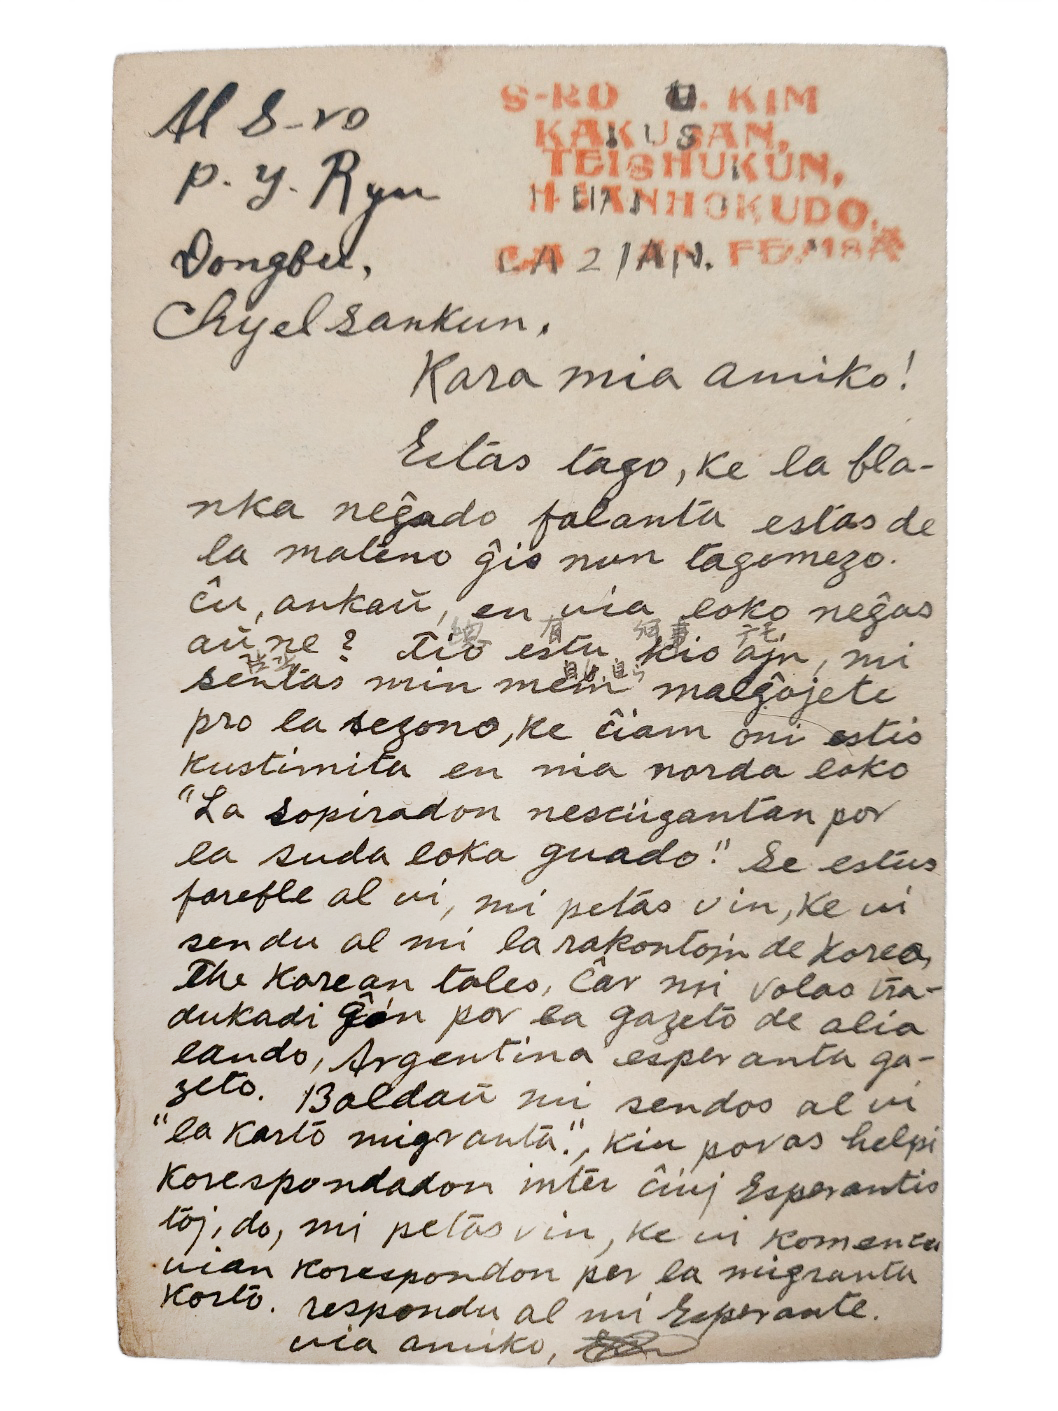 Al S-ro
P. Y. Ryu
Dongbu,
Chyelsankun.
S-RO U. KIM
KAKUSAN,
TEISHUKUN,
HEIANHOKUDO,
LA 2 JAN.
Kara mia amiko!
Estas tago, ke la bla-
nka neĝado falanta estas de
la mateno ĝis nun tagomezo.
ĉu, ankaŭ, en via loko neĝas
aŭ ne? Tio estu kio ajn, mi
sentas min mem malĝojete
pro la sezono, ke ĉiam oni estis
kustimita en nia norda loko
"La sopiradon nesciigantan por
la suda loka guado." Se estus
fareble al vi, mi petas vin, ke vi
sendu al mi la rakontojn de Korea,
The Korean tales, Ĉar mi volas tra-
dukadi ĝin por la gazeto de alia
lando, Argentina esperanta ga-
zeto. Baldaŭ mi sendos al vi
"la karto migranta.", kiu povas helpi
korespondadon inter ĉiuj Esperantis
toj, do, mi petas vin, ke vi komencu
vian korespondon per la migranta
karto. respondu al mi Esperante.
via amiko,